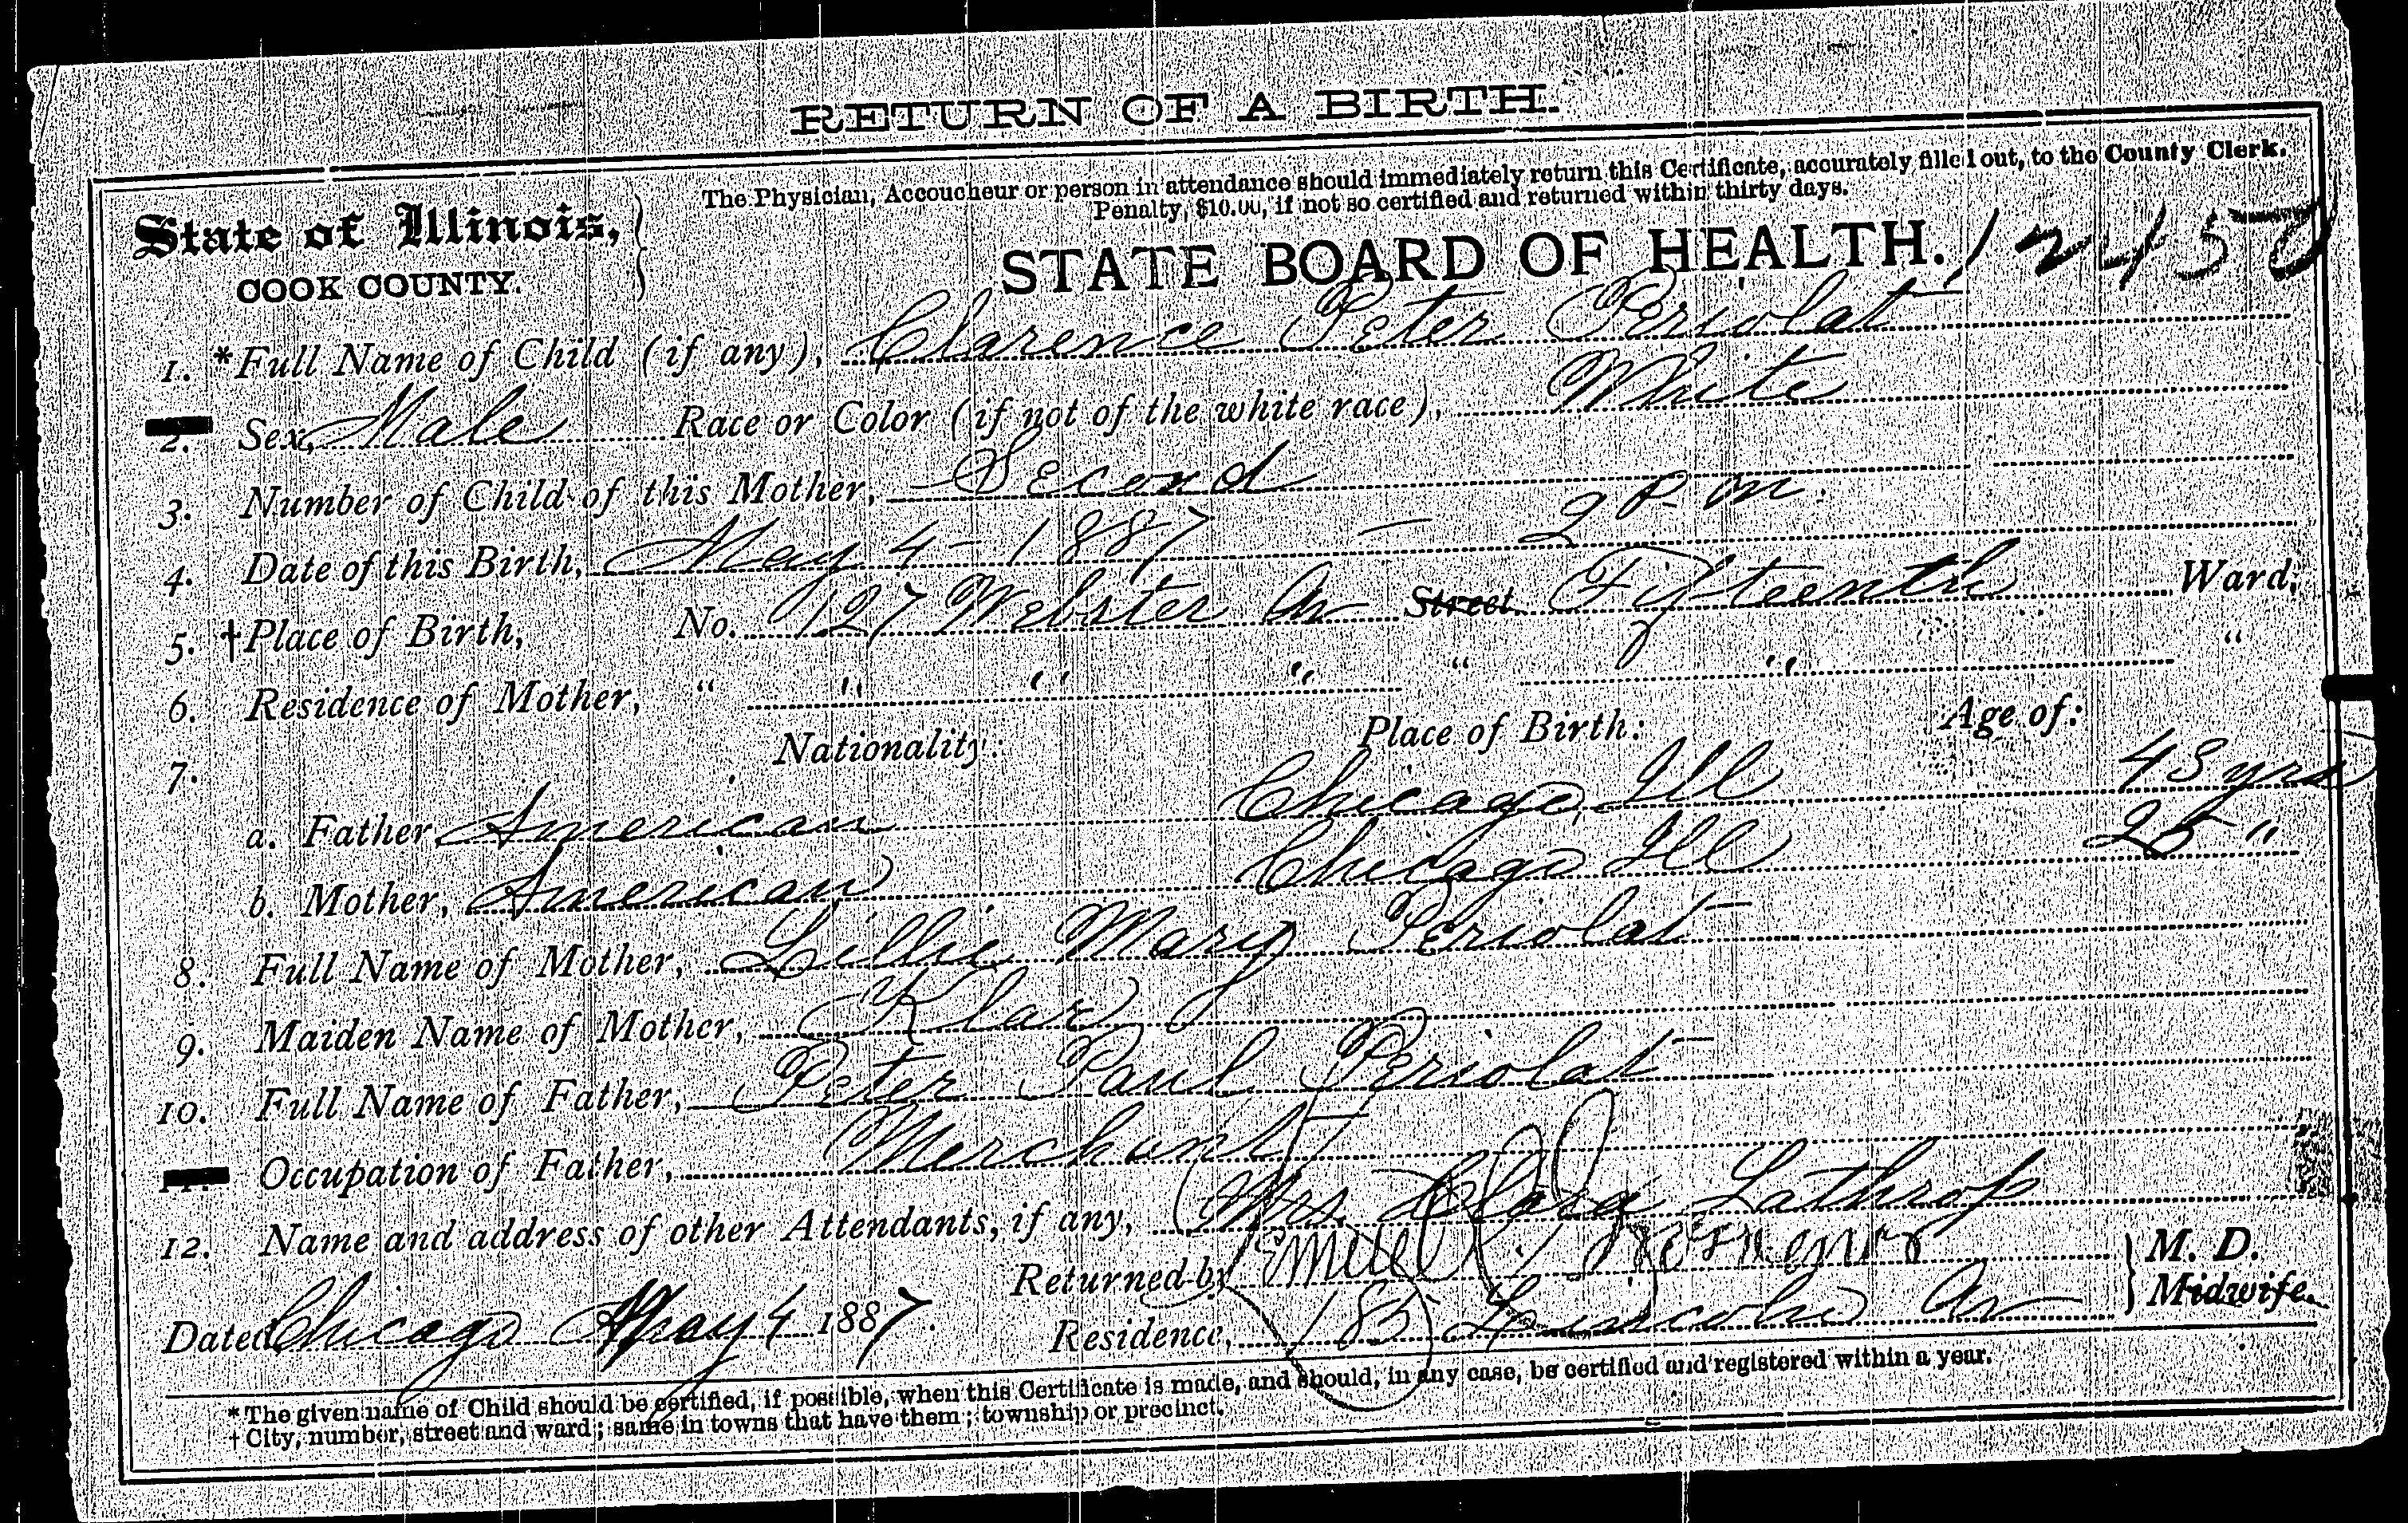 RETURN OF A BIRTH.
The Physician, Accoucheur or person in attendance should immediately return this Certificate, accurately filled out, to the County Clerk.
Penalty, $10.00, if not so certified and returned within thirty days.
State of Illinois,
COOK COUNTY.
STATE BOARD OF HEALTH. 12450
1. *Full Name of Child (if any), Clarence Peter Periolat
2. Sex, Male Race or Color (if not of the white race), White
3. Number of Child of this Mother, Second
4. Date of this Birth, May 4 - 1887 - 2 P. m.
5. †Place of Birth, No. 127 Webster Av Street Fifteenth Ward,
6. Residence of Mother, " " " " " " "
7. Nationality: Place of Birth: Age of:
a. Father, American Chicago, Ill 43 yrs
b. Mother, American Chicago Ill 25 "
8. Full Name of Mother, Lillie Mary Periolat
9. Maiden Name of Mother, Klar
10. Full Name of Father, Peter Paul Periolat
11. Occupation of Father, Merchant
12. Name and address of other Attendants, if any, Mrs. Clara Lathrop
Returned by M. D.
Midwife.
Dated Chicago May 4 1887.
Residence, 185 Lincoln Av
* The given name of Child should be certified, if possible, when this Certificate is made, and should, in any case, be certified and registered within a year.
† City, number, street and ward; same in towns that have them; township or precinct.